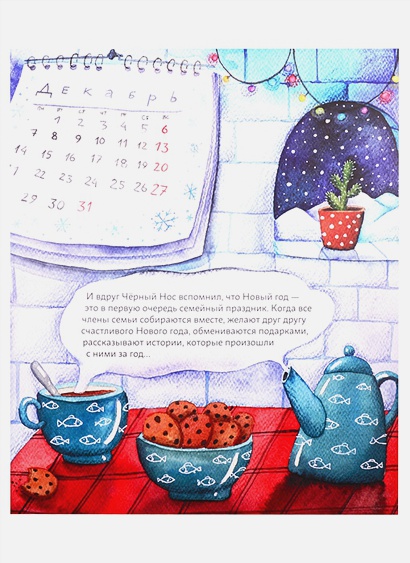 Декабрь
1 2 3 4 5 6
7 8 9 10 11 12 13
14 15 16 17 18 19 20
22 23 24 25 26 27
29 30 31
И вдруг Чёрный Нос вспомнил, что Новый год —
это в первую очередь семейный праздник. Когда все
члены семьи собираются вместе, желают друг другу
счастливого Нового года, обмениваются подарками,
рассказывают истории, которые произошли
с ними за год...